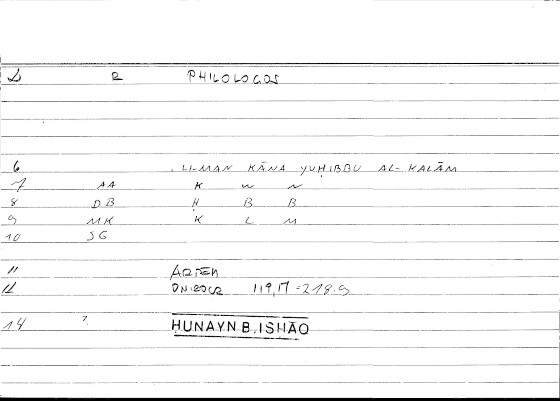 2 PHILOLOGOS
6 LI-MAN KĀNA YUḤIBBU AL-KALĀM
7 AA K W N
8 DB Ḥ B B
9 MK K L M
10 SG
11 ARTEM
12 ONIROCR 119,17 = 218.9
14 ? ḤUNAYN B. ISḤĀQ